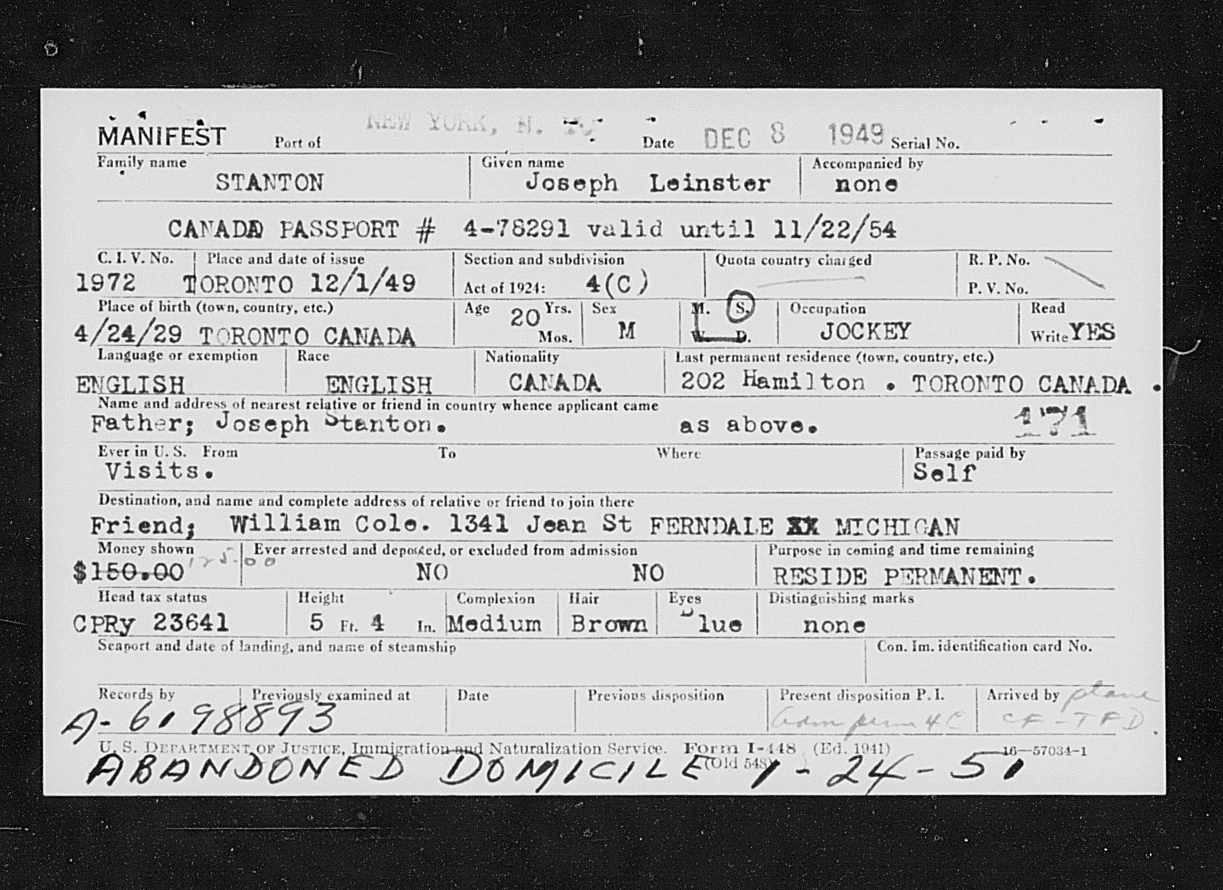 MANIFEST Port of NEW YORK, N. Y. Date DEC 8 1949 Serial No.
Family name Given name Accompanied by
STANTON Joseph Leinster none
CANADA PASSPORT # 4-78291 valid until 11/22/54
C. I. V. No. Place and date of issue Section and subdivision Quota country charged R. P. No.
1972 TORONTO 12/1/49 Act of 1924: 4(C) P. V. No.
Place of birth (town, country, etc.) Age 20 Yrs. Sex M. S. Occupation Read
4/24/29 TORONTO CANADA Mos. M W. D. JOCKEY Write YES
Language or exemption Race Nationality Last permanent residence (town, country, etc.)
ENGLISH ENGLISH CANADA 202 Hamilton . TORONTO CANADA .
Name and address of nearest relative or friend in country whence applicant came
Father; Joseph Stanton. as above. 171
Ever in U. S. From To Where Passage paid by
Visits. Self
Destination, and name and complete address of relative or friend to join there
Friend; William Cole. 1341 Jean St FERNDALE XX MICHIGAN
Money shown Ever arrested and deported, or excluded from admission Purpose in coming and time remaining
$150.00 125.00 NO NO RESIDE PERMANENT.
Head tax status Height Complexion Hair Eyes Distinguishing marks
CPRy 23641 5 Ft. 4 In. Medium Brown Blue none
Seaport and date of landing, and name of steamship Con. Im. identification card No.
Records by Previously examined at Date Previous disposition Present disposition P. I. Arrived by plane
A-6198893 adm perm 4C CF-TFD.
U. S. DEPARTMENT OF JUSTICE, Immigration and Naturalization Service. Form I-448 (Ed. 1941) 16—57034-1
(Old 548)
ABANDONED DOMICILE 1-24-51